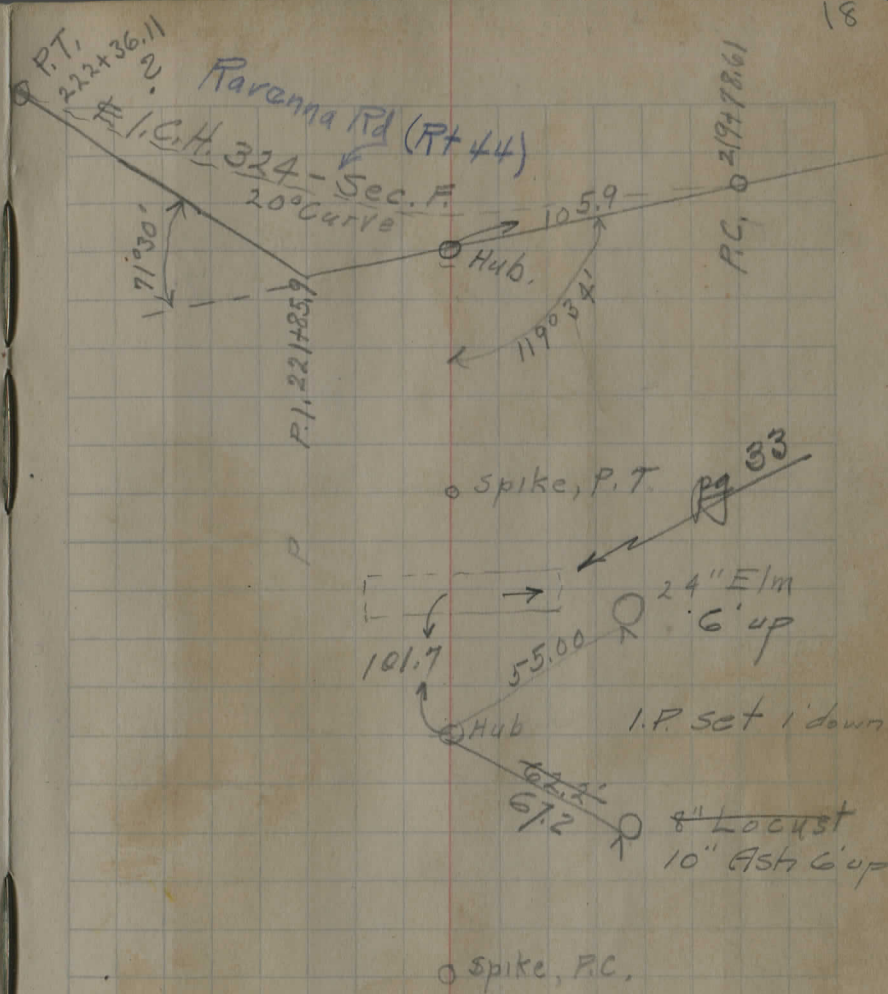 18
P.T.
222+36.11
?
Ravenna Rd (Rt 44)
I.C.H. 324 - Sec. F.
20° Curve
219+78.61
P.C.
105.9
Hub.
71°30'
119° 34'
P.I. 221+85.9
Spike, P.T.
pg 33
P
24" Elm
6' up
101.7
55.00
Hub
I.P. set 1' down
62.2'
67.2
8" Locust
10" Ash 6' up
Spike, P.C.